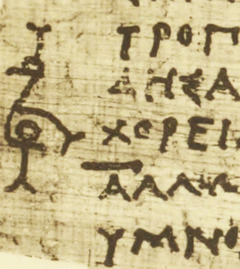 ΤΡΟΠ
ΔΗΣΑ
ΧΟΡΕΙ
ΑΛΛ
ΥΜΝΟ